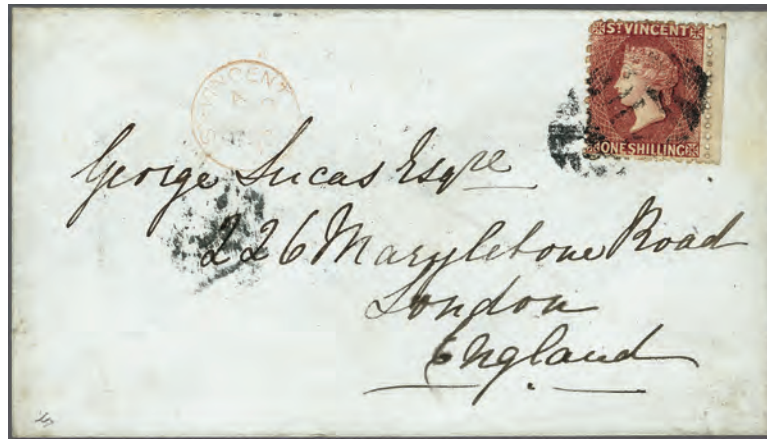 ST VINCENT
ONE SHILLING
ST VINCENT
A
George Lucas Esqre
226 Marylebone Road
London
England